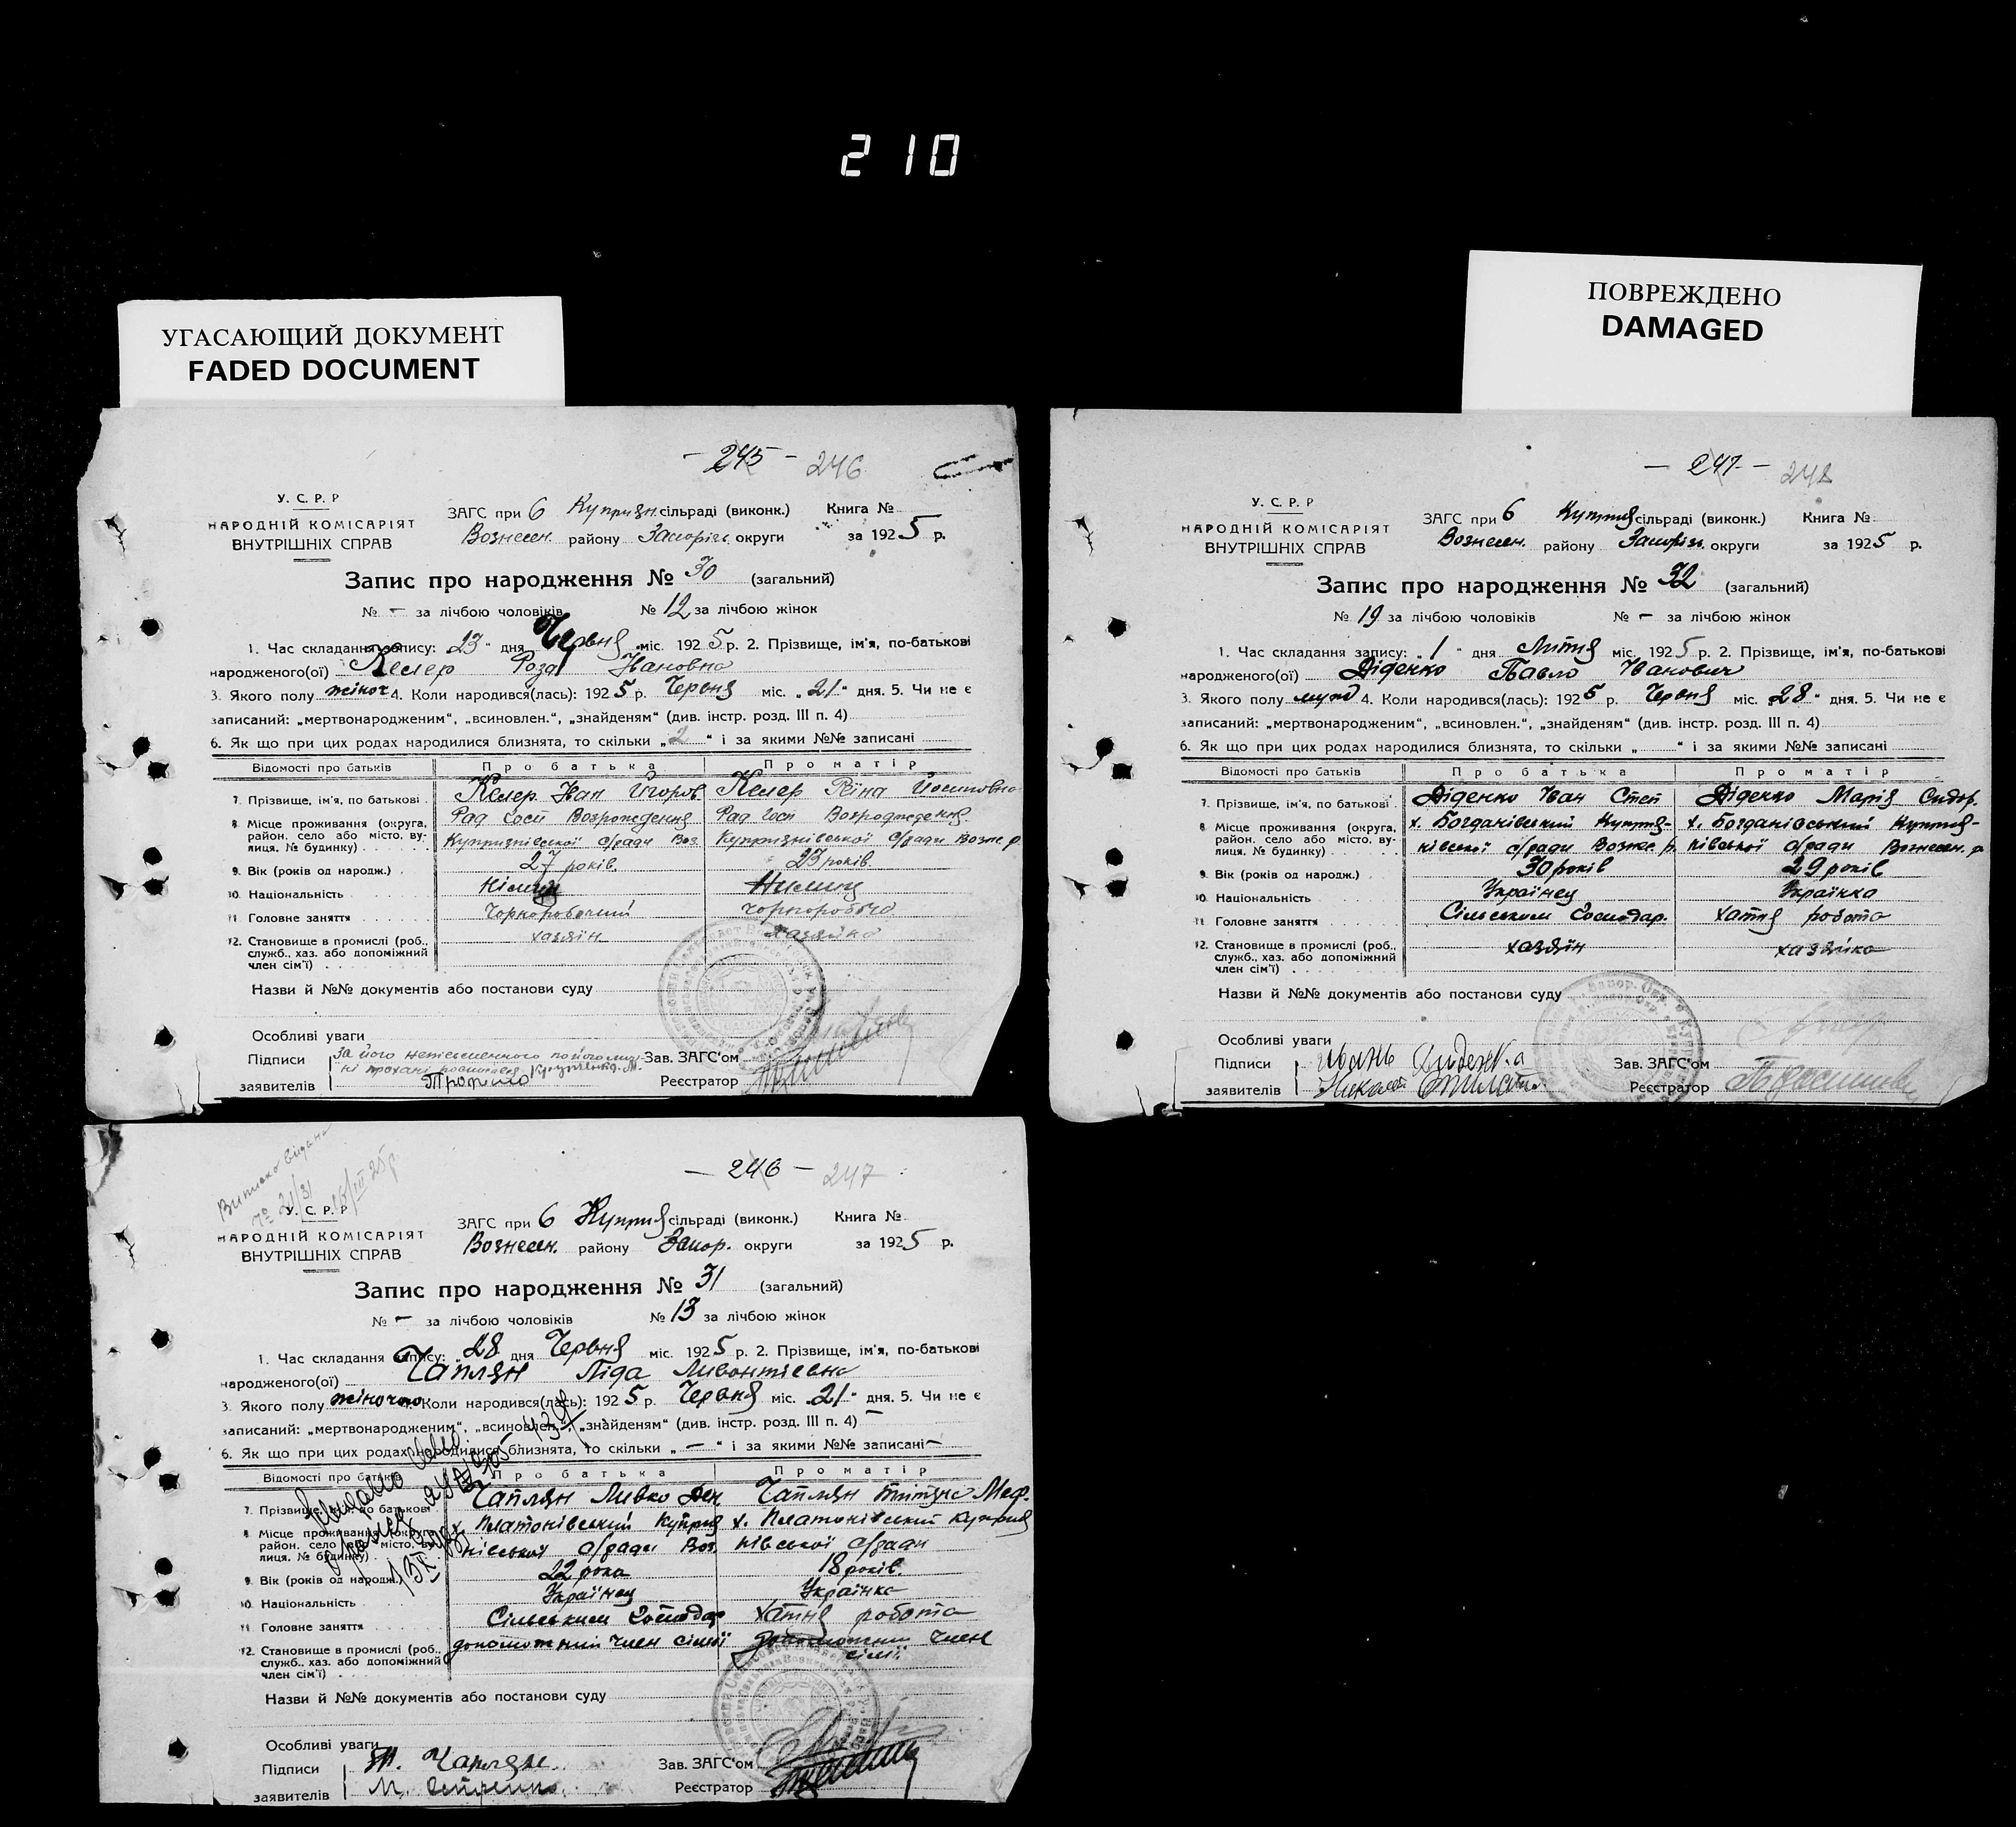 210
УГАСАЮЩИЙ ДОКУМЕНТ
FADED DOCUMENT
- 245 - 246
У. С. Р. Р
НАРОДНІЙ КОМІСАРІЯТ
ВНУТРІШНІХ СПРАВ
ЗАГС при 6 Куприян. сільраді (виконк.) Книга №
Вознесен. району Запоріз. округи за 1925 р.
Запис про народження № 30 (загальний)
№ - за лічбою чоловіків № 12 за лічбою жінок
1. Час складання запису: „23" дня Червня міс. 1925 р. 2. Прізвище, ім'я, по-батькові
народженого(ої) Келер Роза Ивановна
3. Якого полу жіноч 4. Коли народився(лась): 1925 р. Червня міс. „21" дня. 5. Чи не є
записаний: „мертвонародженим", „всиновлен.", „знайденям" (див. інстр. розд. III п. 4)
6. Як що при цих родах народилися близнята, то скільки „2" і за якими №№ записані
Відомості про батьків Про батька Про матір
7. Прізвище, ім'я, по батькові Келер Іван Егоров Келер Ріна Йосиповна
8. Місце проживання (округа, район, село або місто, вулиця, № будинку) Рад Госп Возрождения Рад Госп Возрождения
Куприянівської с/ради Воз. Куприянівської с/ради Возне. р
9. Вік (років од народж.) 27 років. 23 років.
10. Національність Німець Нимець
11. Головне заняття Чорноробочий чорноробоча
12. Становище в промислі (роб., служб., хаз. або допоміжний член сім'ї) хазяін хазяйка
Назви й №№ документів або постанови суду
Особливі уваги
Підписи За його неписьменного по його
ні прохані росписався
заявителів
Зав. ЗАГС'ом
Реєстратор
ПОВРЕЖДЕНО
DAMAGED
- 247 - 248
У. С. Р. Р
НАРОДНІЙ КОМІСАРІЯТ
ВНУТРІШНІХ СПРАВ
ЗАГС при 6 Куприя сільраді (виконк.) Книга №
Вознесен. району Запоріз. округи за 1925 р.
Запис про народження № 32 (загальний)
№ 19 за лічбою чоловіків № - за лічбою жінок
1. Час складання запису: „1" дня Липня міс. 1925 р. 2. Прізвище, ім'я, по-батькові
народженого(ої) Діденко Павло Іванович
3. Якого полу муж 4. Коли народився(лась): 1925 р. Червня міс. „28" дня. 5. Чи не є
записаний: „мертвонародженим", „всиновлен.", „знайденям" (див. інстр. розд. III п. 4)
6. Як що при цих родах народилися близнята, то скільки „ " і за якими №№ записані
Відомості про батьків Про батька Про матір
7. Прізвище, ім'я, по батькові Діденко Іван Степ Діденко Марія Сидор.
8. Місце проживання (округа, район, село або місто, вулиця, № будинку) х. Богданівський Куприя- х. Богданівський Куприя-
нівської с/ради Возне. р. нівської с/ради Вознесен. р
9. Вік (років од народж.) 30 років 29 років
10. Національність Українец Українка
11. Головне заняття Сільським Господар. хатня робота
12. Становище в промислі (роб., служб., хаз. або допоміжний член сім'ї) хазяїн хазяйка
Назви й №№ документів або постанови суду
Особливі уваги
Підписи Ивань Диденка
заявителів Николай
Зав. ЗАГС'ом
Реєстратор
Виписка видана
№ 21/31 16/III 25 р.
- 246 - 247
У. С. Р. Р
НАРОДНІЙ КОМІСАРІЯТ
ВНУТРІШНІХ СПРАВ
ЗАГС при 6 Куприя сільраді (виконк.) Книга №
Вознесен. району Запор. округи за 1925 р.
Запис про народження № 31 (загальний)
№ - за лічбою чоловіків № 13 за лічбою жінок
1. Час складання запису: „28 дня Червня міс. 1925 р. 2. Прізвище, ім'я, по-батькові
народженого(ої) Чаплян Ліда Ливонтіевна
3. Якого полу жіночто Коли народився(лась): 1925 р. Червня міс. „21" дня. 5. Чи не є
записаний: „мертвонародженим", „всиновлен.", „знайденям" (див. інстр. розд. III п. 4) -
6. Як що при цих родах народилися близнята, то скільки „-" і за якими №№ записані -
Відомості про батьків Про батька Про матір
7. Прізвище, ім'я, по батькові Чаплян Ливко Дем. Чаплян Меф.
8. Місце проживання (округа, район, село або місто, вулиця, № будинку) х. Платонівський Куприя х. Платонівський Куприя
нівської с/ради Воз. нівської с/ради
9. Вік (років од народж.) 22 рока 18 років.
10. Національність Українец Українка
11. Головне заняття Сільським Господар хатня робота
12. Становище в промислі (роб., служб., хаз. або допоміжний член сім'ї) допоможний член сімьї допоможний член
сімї
Назви й №№ документів або постанови суду
Особливі уваги
Підписи Чаплян
заявителів М.
Зав. ЗАГС'ом
Реєстратор